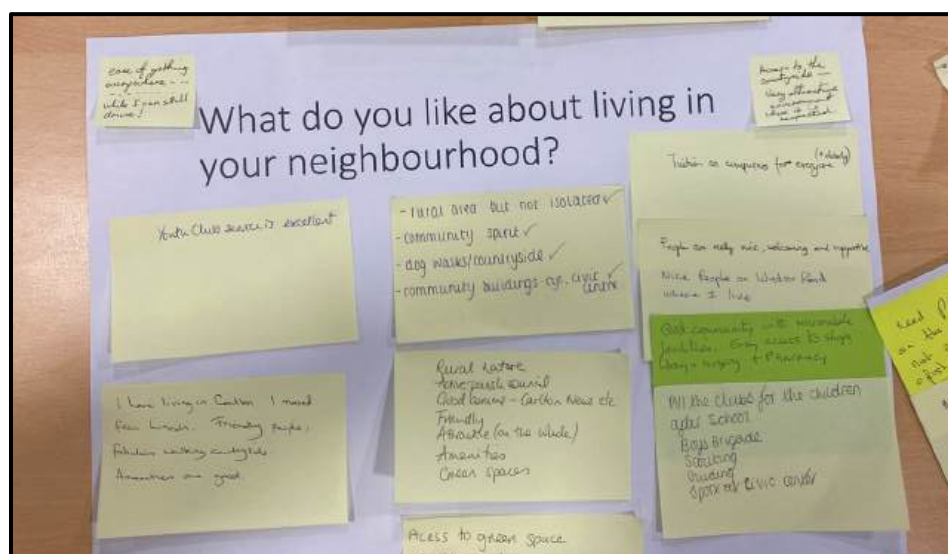 ease of getting
everywhere - - -
while I can still
drive!
Access to the
countryside -
Very attractive
environment
where it is
respected
What do you like about living in
your neighbourhood?
Tuition on computers for everyone
(+ elderly)
Youth Club service is excellent
- rural area but not isolated ✓
- community spirit ✓
- dog walks/countryside ✓
- community buildings - eg. civic ✓
centre
People are really nice, welcoming and supportive
Nice People on Windsor Road
where I live
Good community with reasonable
facilities. Easy access to shops
surgery + Pharmacy
I love living in Carlton I moved
from Lincoln. Friendly people,
fabulous walking countryside
Amenities are good.
Rural nature
Active parish council
Good comms - Carlton News etc
Friendly
Attractive (on the whole)
Amenities
Green spaces
All the clubs for the children
after School
Boys Brigade
Scouting
Guiding
Sports at Civic center
Acess to green space
need
on the
not